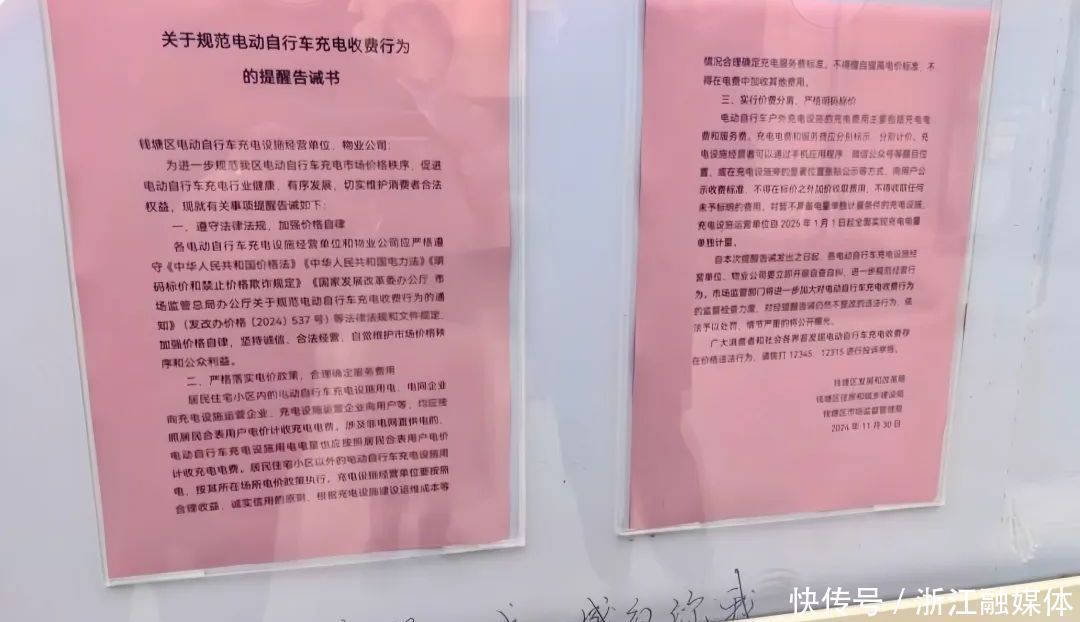 关于规范电动自行车充电收费行为
的提醒告诫书
钱塘区电动自行车充电设施经营单位、物业公司：
为进一步规范我区电动自行车充电市场价格秩序，促进
电动自行车充电行业健康、有序发展，切实维护消费者合法
权益，现就有关事项提醒告诫如下：
一、遵守法律法规，加强价格自律
各电动自行车充电设施经营单位和物业公司应严格遵
守《中华人民共和国价格法》《中华人民共和国电力法》《明
码标价和禁止价格欺诈规定》《国家发展改革委办公厅 市
场监管总局办公厅关于规范电动自行车充电收费行为的通
知》（发改办价格〔2024〕537号）等法律法规和文件规定，
加强价格自律，坚持诚信、合法经营，自觉维护市场价格秩
序和公众利益。
二、严格落实电价政策，合理确定服务费用
居民住宅小区内的电动自行车充电设施用电，电网企业
向充电设施运营企业、充电设施运营企业向用户等，均应按
照居民合表用户电价计收充电电费。涉及非电网直供电的，
电动自行车充电设施用电电量也应按照居民合表用户电价
计收充电电费。居民住宅小区以外的电动自行车充电设施用
电，按其所在场所电价政策执行。充电设施经营单位要按照
合理收益、诚实信用的原则，根据充电设施建设运维成本等
情况合理确定充电服务费标准。不得擅自提高电价标准，不
得在电费中加收其他费用。
三、实行价费分离，严格明码标价
电动自行车户外充电设施的充电费用主要包括充电电
费和服务费。充电电费和服务费应分别标示、分别计价。充
电设施经营者可以通过手机应用程序、微信公众号等醒目位
置，或在充电设施旁的显著位置张贴公示等方式，向用户公
示收费标准，不得在标价之外加价收取费用，不得收取任何
未予标明的费用。对暂不具备电量单独计量条件的充电设施，
充电设施运营单位自2025年1月1日起全面实现充电电量
单独计量。
自本次提醒告诫发出之日起，各电动自行车充电设施经
营单位、物业公司要立即开展自查自纠，进一步规范经营行
为。市场监管部门将进一步加大对电动自行车充电收费行为
的监督检查力度，对经提醒告诫仍然不整改的违法行为，依
法予以处罚，情节严重的将公开曝光。
广大消费者和社会各界若发现电动自行车充电收费存
在价格违法行为，请拨打12345、12315进行投诉举报。
钱塘区发展和改革局
钱塘区住房和城乡建设局
钱塘区市场监督管理局
2024年11月30日
快传号／浙江融媒体